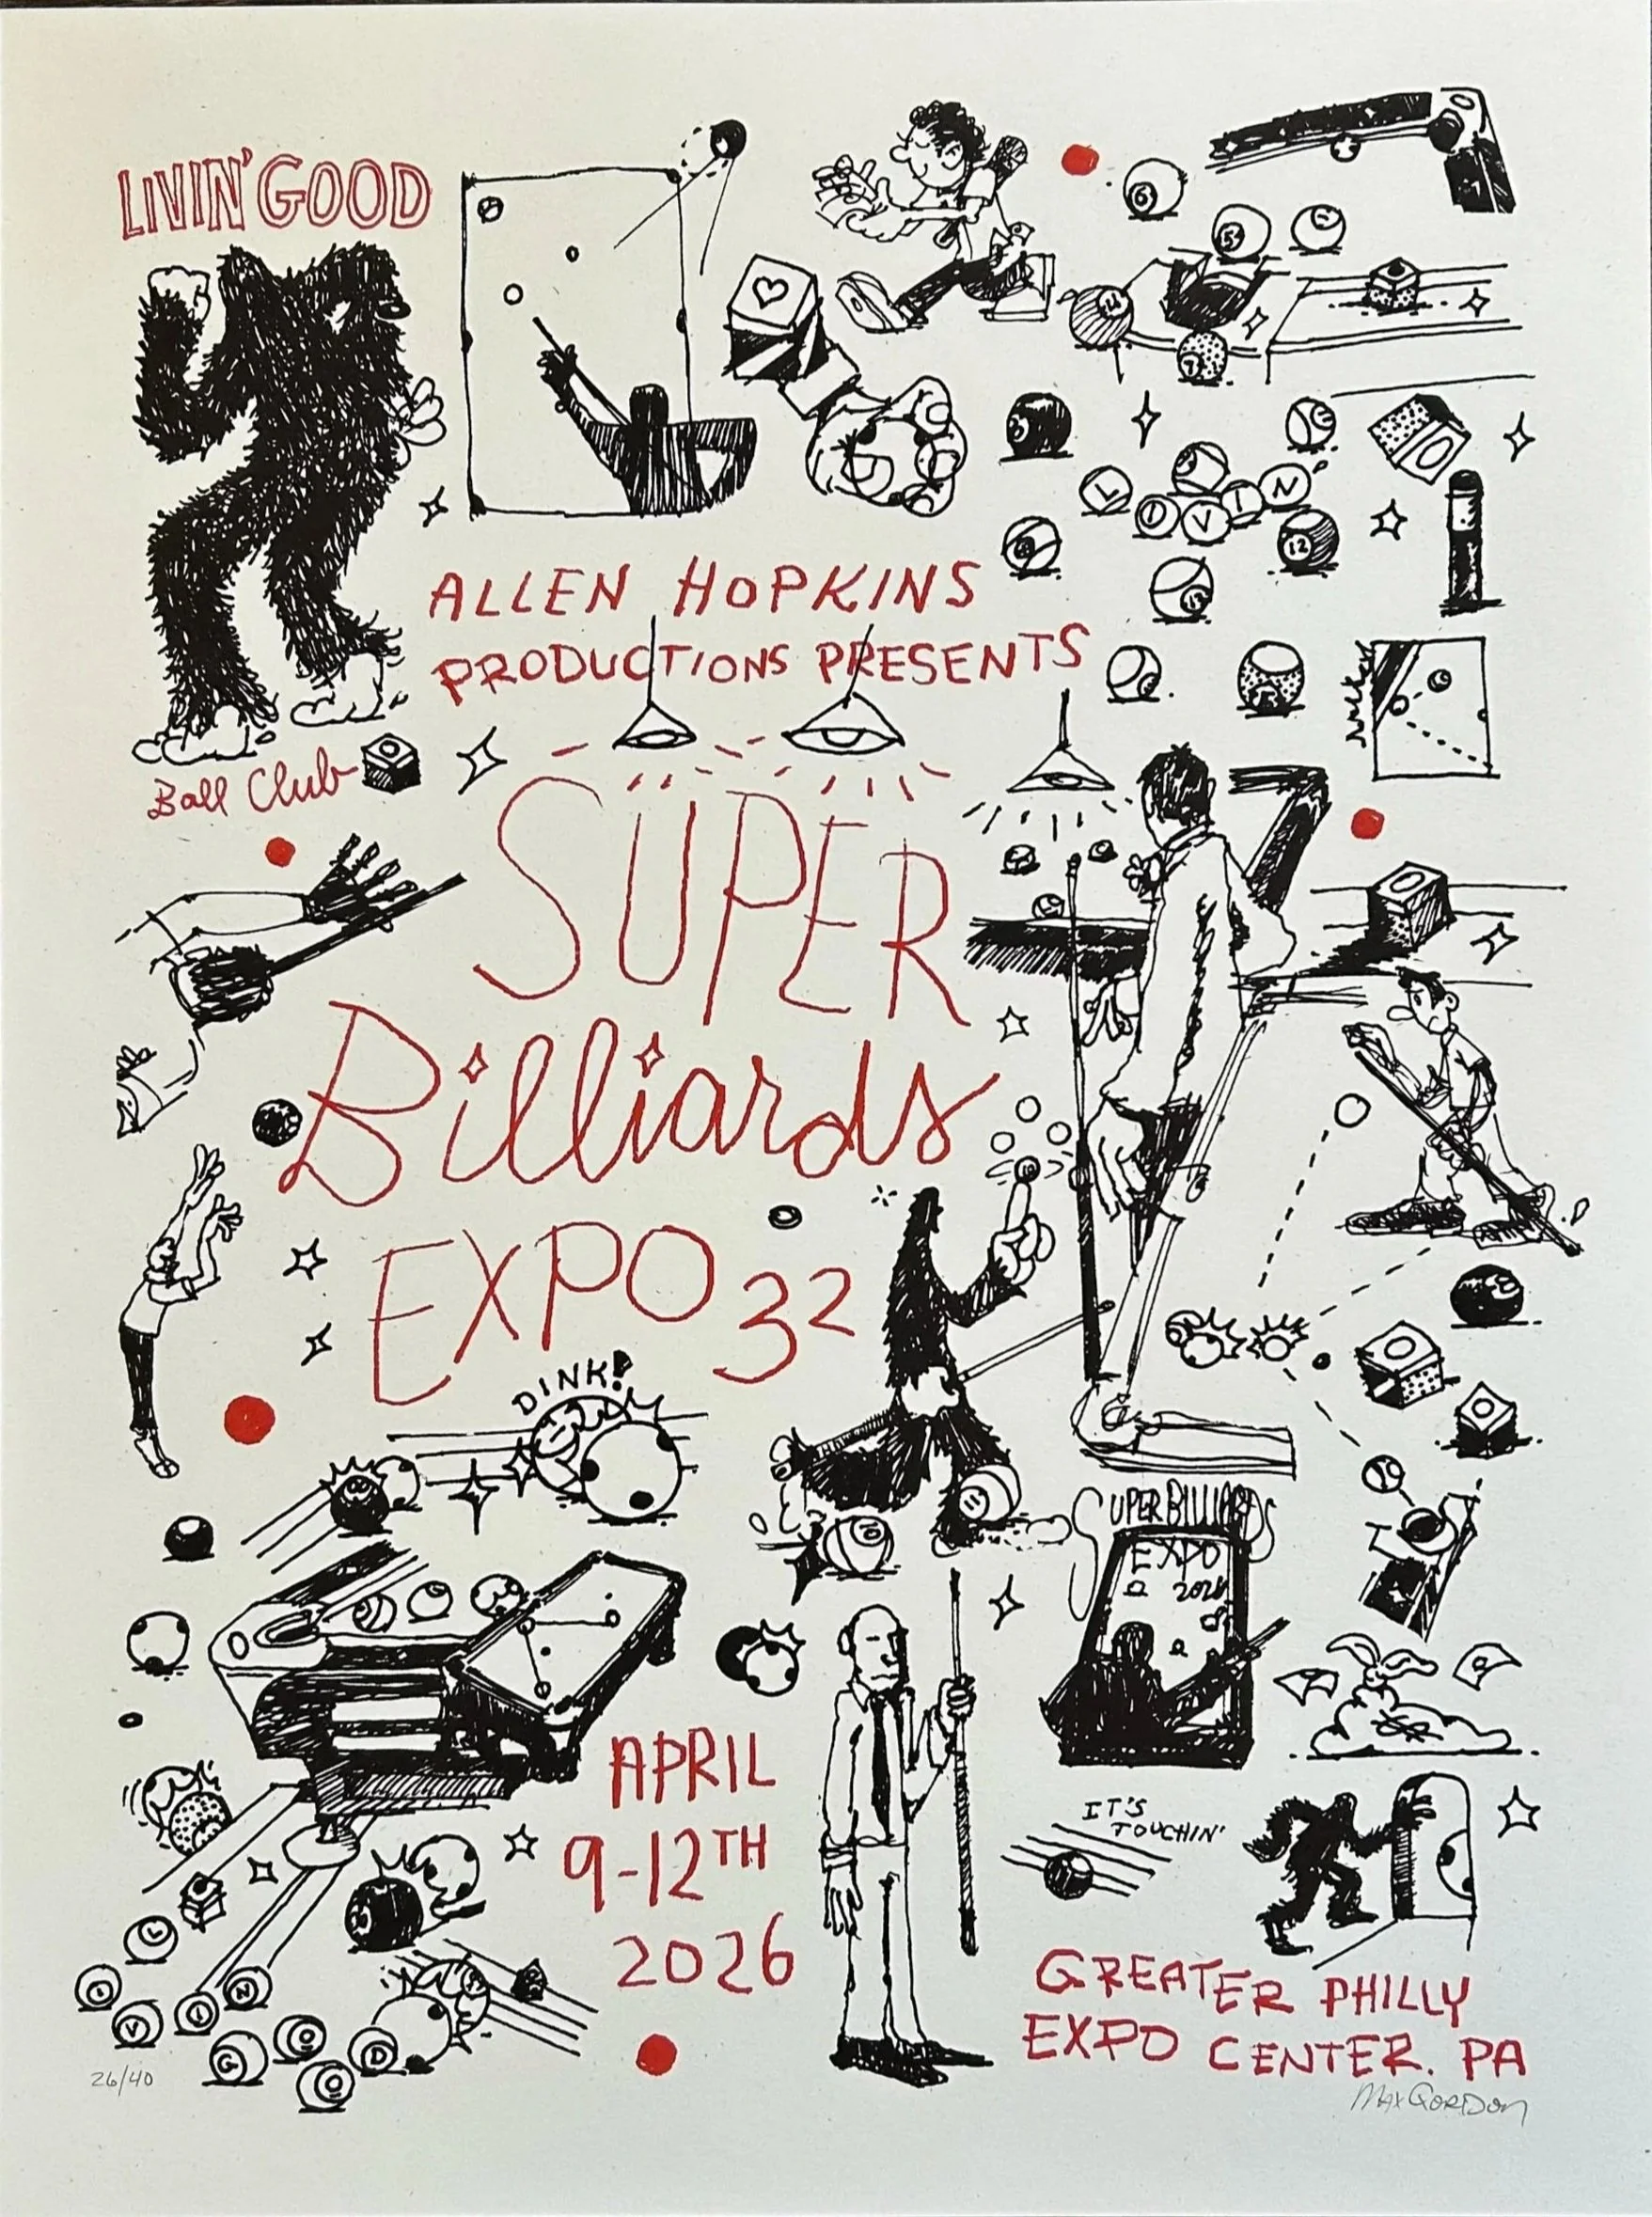 LIVIN' GOOD
Ball Club
ALLEN HOPKINS
PRODUCTIONS PRESENTS
SUPER
Billiards
EXPO 32
6
5
14
7
3
L I V I N'
12
15
7
10
11
DINK!
SUPER BILLIARDS
EXPO
2026
APRIL
9-12TH
2026
IT'S
TOUCHIN'
L I V I N
G O O D
GREATER PHILLY
EXPO CENTER. PA
26/40
MAX GORDON